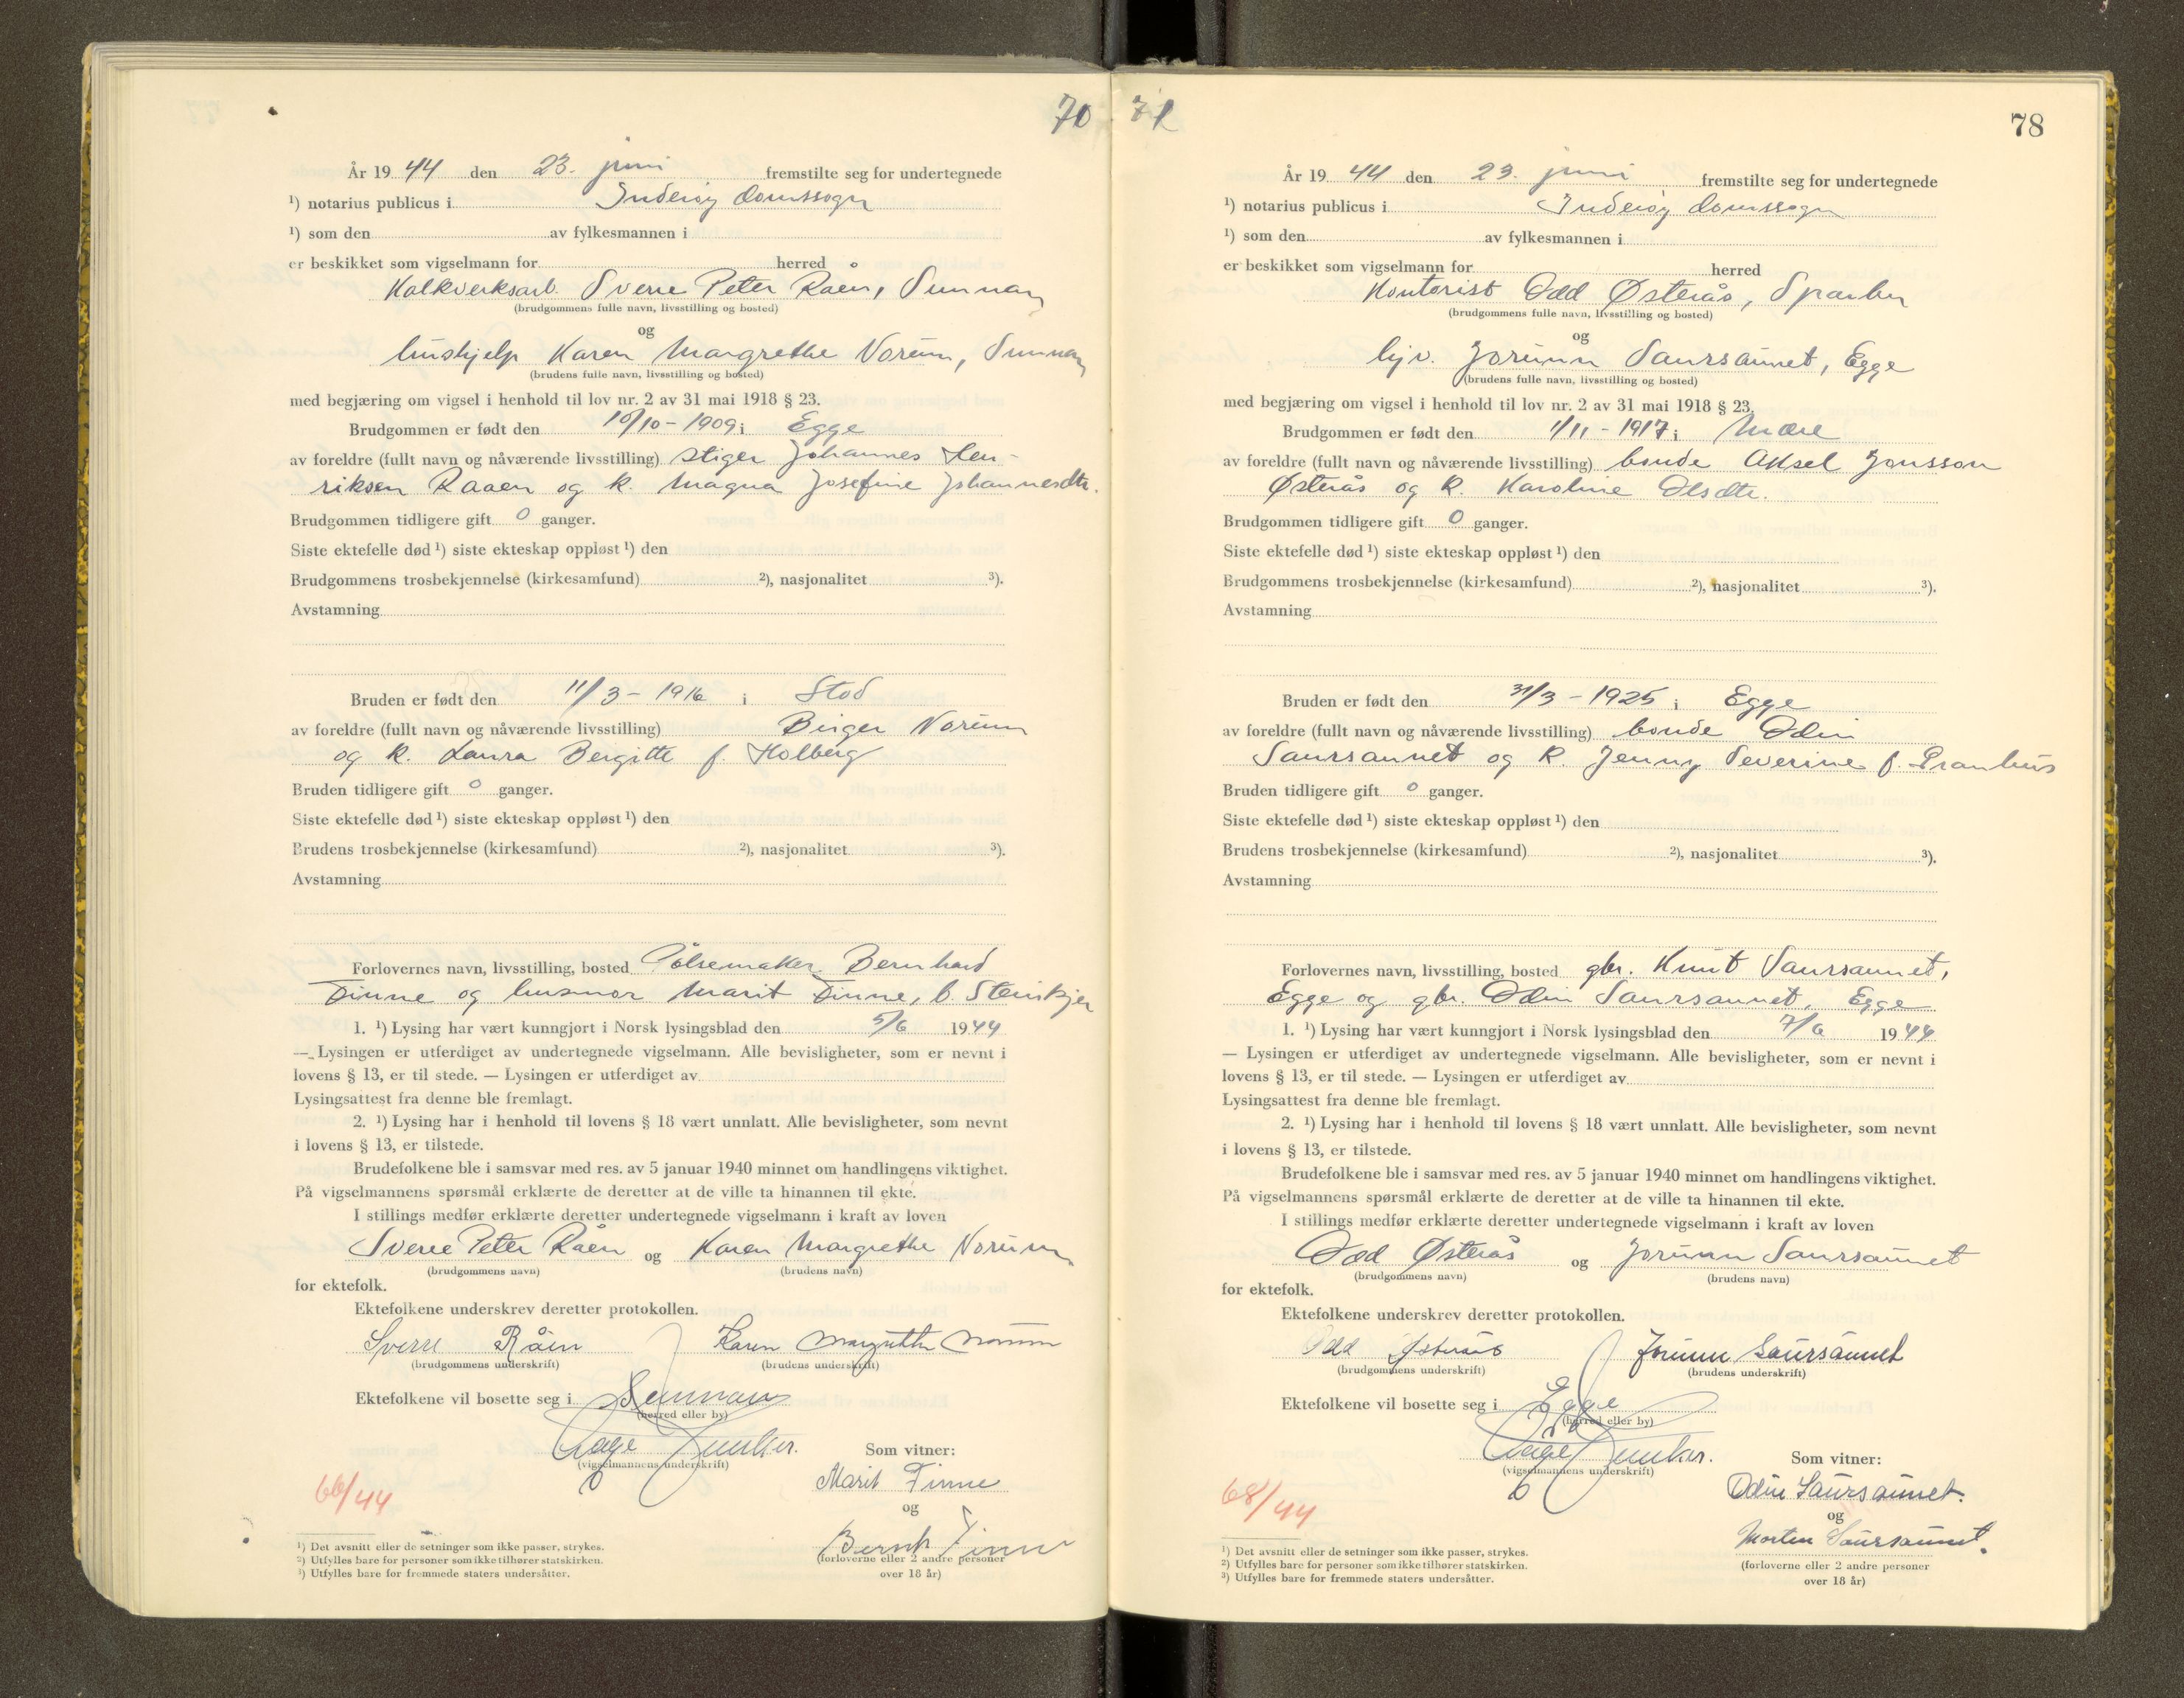 70
År 19 44 den 23. juni fremstilte seg for undertegnede
¹) notarius publicus i Inderøy domssogn
¹) som den av fylkesmannen i
er beskikket som vigselmann for herred
Kalkverksarb. Sverre Peter Råen, Sunnan
(brudgommens fulle navn, livsstilling og bosted)
og
hushjelp Karen Margrethe Norum, Sunnan
(brudens fulle navn, livsstilling og bosted)
med begjæring om vigsel i henhold til lov nr. 2 av 31 mai 1918 § 23.
Brudgommen er født den 10/10 - 1909 i Egge
av foreldre (fullt navn og nåværende livsstilling) stiger Johannes Hen-
riksen Raaen og k. Magna Josefine Johannesdtr.
Brudgommen tidligere gift 0 ganger.
Siste ektefelle død ¹) siste ekteskap oppløst ¹) den
Brudgommens trosbekjennelse (kirkesamfund) ²), nasjonalitet ³).
Avstamning
Bruden er født den 11/3 - 1916 i Stod
av foreldre (fullt navn og nåværende livsstilling) Birger Norum
og k. Laura Bergitte f. Holberg
Bruden tidligere gift 0 ganger.
Siste ektefelle død ¹) siste ekteskap oppløst ¹) den
Brudens trosbekjennelse (kirkesamfund) ²), nasjonalitet ³).
Avstamning
Forlovernes navn, livsstilling, bosted Pølsemaker Bernhard
Finne og husmor Marit Finne, b. Steinkjer
1. ¹) Lysing har vært kunngjort i Norsk lysingsblad den 5/6 1944
— Lysingen er utferdiget av undertegnede vigselmann. Alle bevisligheter, som er nevnt i
lovens § 13, er til stede. — Lysingen er utferdiget av
Lysingsattest fra denne ble fremlagt.
2. ¹) Lysing har i henhold til lovens § 18 vært unnlatt. Alle bevisligheter, som nevnt
i lovens § 13, er tilstede.
Brudefolkene ble i samsvar med res. av 5 januar 1940 minnet om handlingens viktighet.
På vigselmannens spørsmål erklærte de deretter at de ville ta hinannen til ekte.
I stillings medfør erklærte deretter undertegnede vigselmann i kraft av loven
Sverre Peter Råen og Karen Margrethe Norum
(brudgommens navn) (brudens navn)
for ektefolk.
Ektefolkene underskrev deretter protokollen.
Sverre Råen Karen Margrethe Norum
(brudgommens underskrift) (brudens underskrift)
Ektefolkene vil bosette seg i Sunnan
(herred eller by)
Aage Junker.
(vigselmannens underskrift)
Som vitner:
Marit Finne
og
Bernh Finne
(forloverne eller 2 andre personer
over 18 år)
66/44
¹) Det avsnitt eller de setninger som ikke passer, strykes.
²) Utfylles bare for personer som ikke tilhører statskirken.
³) Utfylles bare for fremmede staters undersåtter.
71
78
År 19 44 den 23. juni fremstilte seg for undertegnede
¹) notarius publicus i Inderøy domssogn
¹) som den av fylkesmannen i
er beskikket som vigselmann for herred
Kontorist Odd Østerås, Sparbu
(brudgommens fulle navn, livsstilling og bosted)
og
hjv. Jorunn Saursaunet, Egge
(brudens fulle navn, livsstilling og bosted)
med begjæring om vigsel i henhold til lov nr. 2 av 31 mai 1918 § 23.
Brudgommen er født den 1/11 - 1917 i Mære
av foreldre (fullt navn og nåværende livsstilling) bonde Aksel Jonsson
Østerås og k. Karoline Olsdtr.
Brudgommen tidligere gift 0 ganger.
Siste ektefelle død ¹) siste ekteskap oppløst ¹) den
Brudgommens trosbekjennelse (kirkesamfund) ²), nasjonalitet ³).
Avstamning
Bruden er født den 31/3 - 1925 i Egge
av foreldre (fullt navn og nåværende livsstilling) bonde Odin
Saursaunet og k. Jenny Severine f. Granhus
Bruden tidligere gift 0 ganger.
Siste ektefelle død ¹) siste ekteskap oppløst ¹) den
Brudens trosbekjennelse (kirkesamfund) ²), nasjonalitet ³).
Avstamning
Forlovernes navn, livsstilling, bosted gbr. Knut Saursaunet,
Egge og gbr. Odin Saursaunet, Egge
1. ¹) Lysing har vært kunngjort i Norsk lysingsblad den 7/6 1944
— Lysingen er utferdiget av undertegnede vigselmann. Alle bevisligheter, som er nevnt i
lovens § 13, er til stede. — Lysingen er utferdiget av
Lysingsattest fra denne ble fremlagt.
2. ¹) Lysing har i henhold til lovens § 18 vært unnlatt. Alle bevisligheter, som nevnt
i lovens § 13, er tilstede.
Brudefolkene ble i samsvar med res. av 5 januar 1940 minnet om handlingens viktighet.
På vigselmannens spørsmål erklærte de deretter at de ville ta hinannen til ekte.
I stillings medfør erklærte deretter undertegnede vigselmann i kraft av loven
Odd Østerås og Jorunn Saursaunet
(brudgommens navn) (brudens navn)
for ektefolk.
Ektefolkene underskrev deretter protokollen.
Odd Østerås Jorunn Saursaunet
(brudgommens underskrift) (brudens underskrift)
Ektefolkene vil bosette seg i Egge
(herred eller by)
Aage Junker.
(vigselmannens underskrift)
Som vitner:
Odin Saursaunet.
og
Morten Saursaunet.
(forloverne eller 2 andre personer
over 18 år)
68/44
¹) Det avsnitt eller de setninger som ikke passer, strykes.
²) Utfylles bare for personer som ikke tilhører statskirken.
³) Utfylles bare for fremmede staters undersåtter.